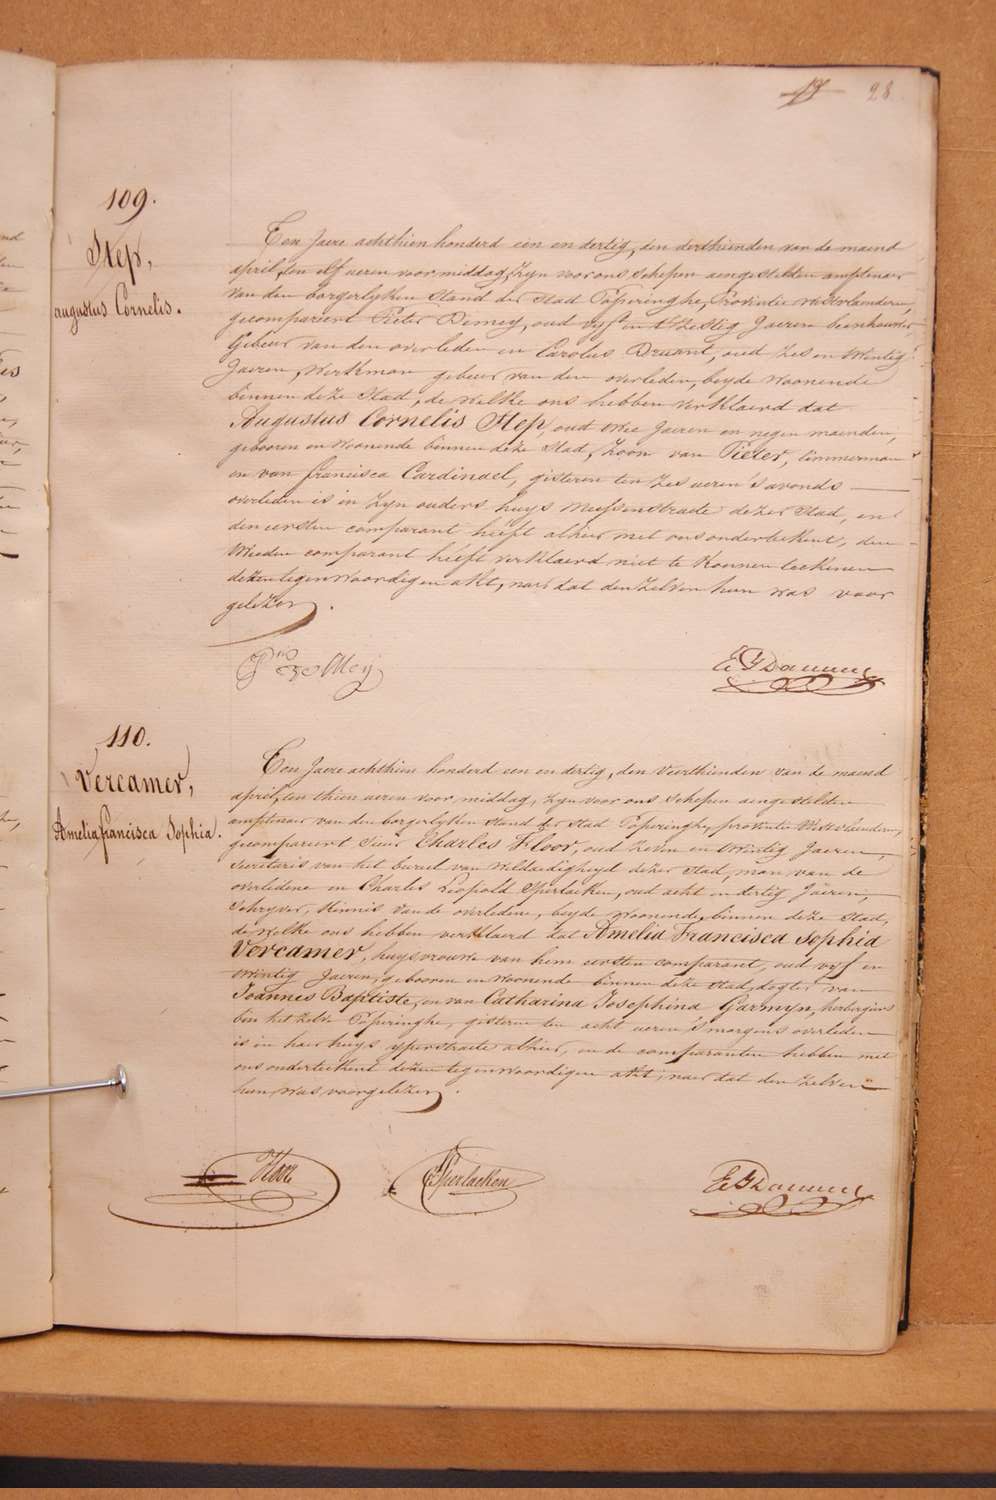 28
109.
Step,
augustus Cornelis.
Een Jaere achthien honderd een en dertig, den derthienden van de maend
april, ten elf ueren voor middag, zyn voor ons schepen aengestelden amptenaer
van den borgerlyken Stand der Stad Poperinghe, Provintie Westvlaenderen,
gecompareert Pieter Demey, oud vyf en tzestig Jaeren beenhouwer,
Gebeur van den overleden en Carolus Druant, oud zes en twintig
Jaeren, Werkman gebeur van den overleden, beyde woonende
binnen deze Stad, de welke ons hebben verklaerd dat
Augustus Cornelis Step, oud twee Jaeren en negen maenden,
gebooren en woonende binnen deze Stad, Zoon van Pieter, timmerman
en van francisca Cardinael, gisteren ten zes ueren s'avonds
overleden is in zyn ouders huys Meessenstraete dezer Stad, en
den eersten comparant heeft alhier met ons onderteekent, den
tweeden comparant heeft verklaerd niet te konnen teekenen
dezen tegenwoordigen akt, naer dat den zelven hun was voor
gelezen.
110.
Vercamer,
Amelia francisca Sophia.
Een Jaere achthien honderd een en dertig, den veerthienden van de maend
april, ten thien ueren voor middag, zyn voor ons schepen aengestelden
amptenaer van den borgerlyken Stand der Stad Poperinghe, provintie Westvlaenderen,
gecompareert Sieur Charles Floor, oud zeven en twintig Jaeren,
Secretaris van het bureel van weldaedigheyd dezer Stad, man van de
overledene en Charles Leopold Sperlaeken, oud acht en dertig Jaeren,
Schryver, kennis van de overledene, beyde woonende binnen deze Stad,
de welke ons hebben verklaerd dat Amelia Francisca Sophia
Vercamer, huysvrouwe van hem eersten comparant, oud vyf en
twintig Jaeren, gebooren en woonende binnen deze Stad, dogter van
Joannes Baptiste, en van Catharina Josephina Garmyn, herbergiers
bin het zelve Poperinghe, gisteren ten acht ueren s'morgens overleden
is in haer huys yperstraete alhier, en de comparanten hebben met
ons onderteekent dezen tegenwoordigen akt, naer dat den zelven
hun was voorgelezen.
Floor
Sperlaeken